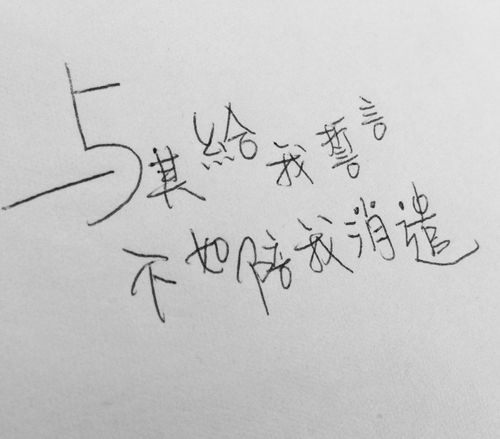 与其给我誓言
不如陪我消遣